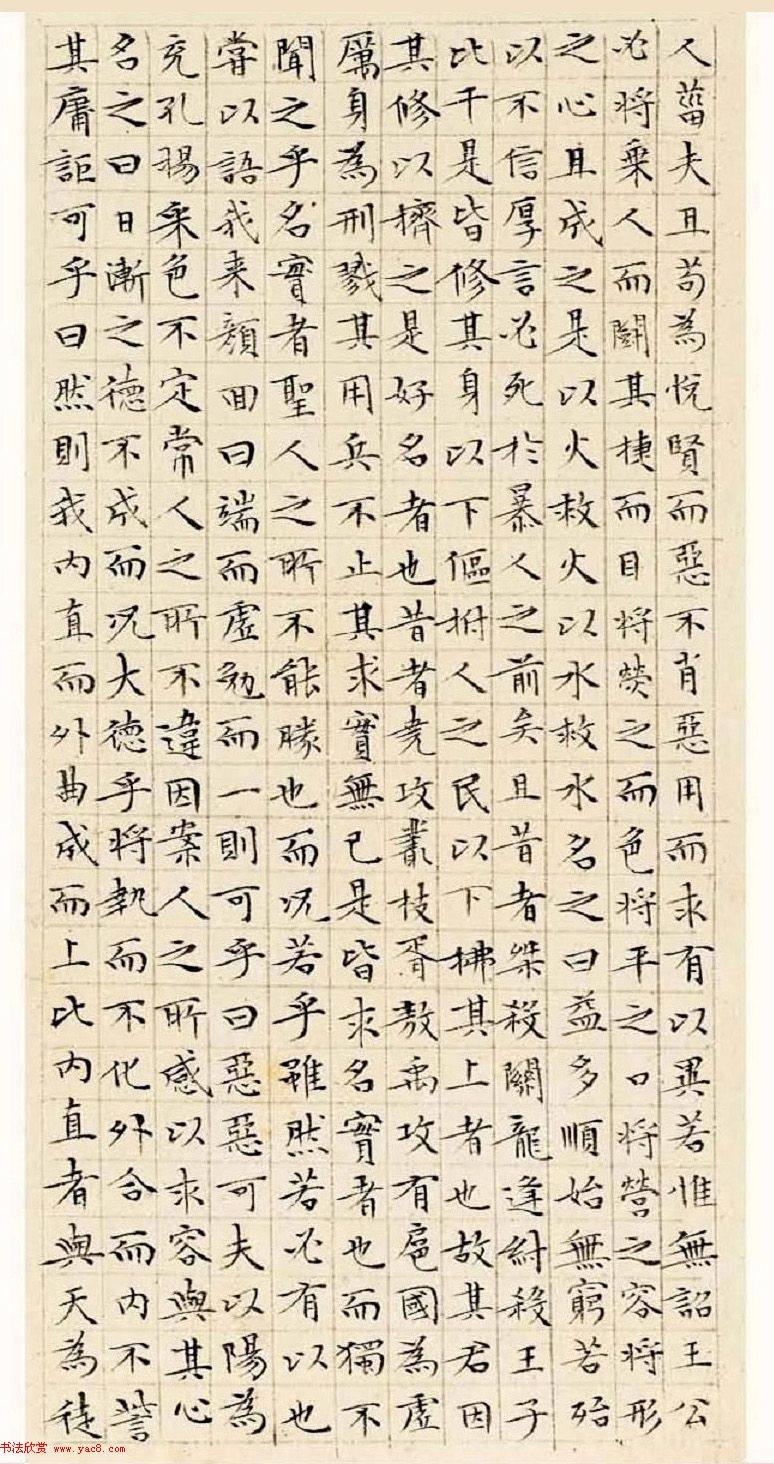 人菑夫且苟為悅賢而惡不肖惡用而求有以異若惟無詔王公
必將乗人而鬭其捷而目將熒之而色將平之口將營之容將形
之心且成之是以火救火以水救水名之曰益多順始無窮若殆
以不信厚言必死於暴人之前矣且昔者桀殺關龍逢紂殺王子
比干是皆修其身以下傴拊人之民以下拂其上者也故其君因
其修以擠之是好名者也昔者堯攻叢枝胥敖禹攻有扈國為虛
厲身為刑戮其用兵不止其求實無已是皆求名實者也而獨不
聞之乎名實者聖人之所不能勝也而况若乎雖然若必有以也
嘗以語我来顔回曰端而虛勉而一則可乎曰惡惡可夫以陽為
充孔揚采色不定常人之所不違因案人之所感以求容與其心
名之曰日漸之德不成而况大德乎將執而不化外合而内不訾
其庸詎可乎曰然則我内直而外曲成而上比内直者與天為徒
书法欣赏 www.yac8.com